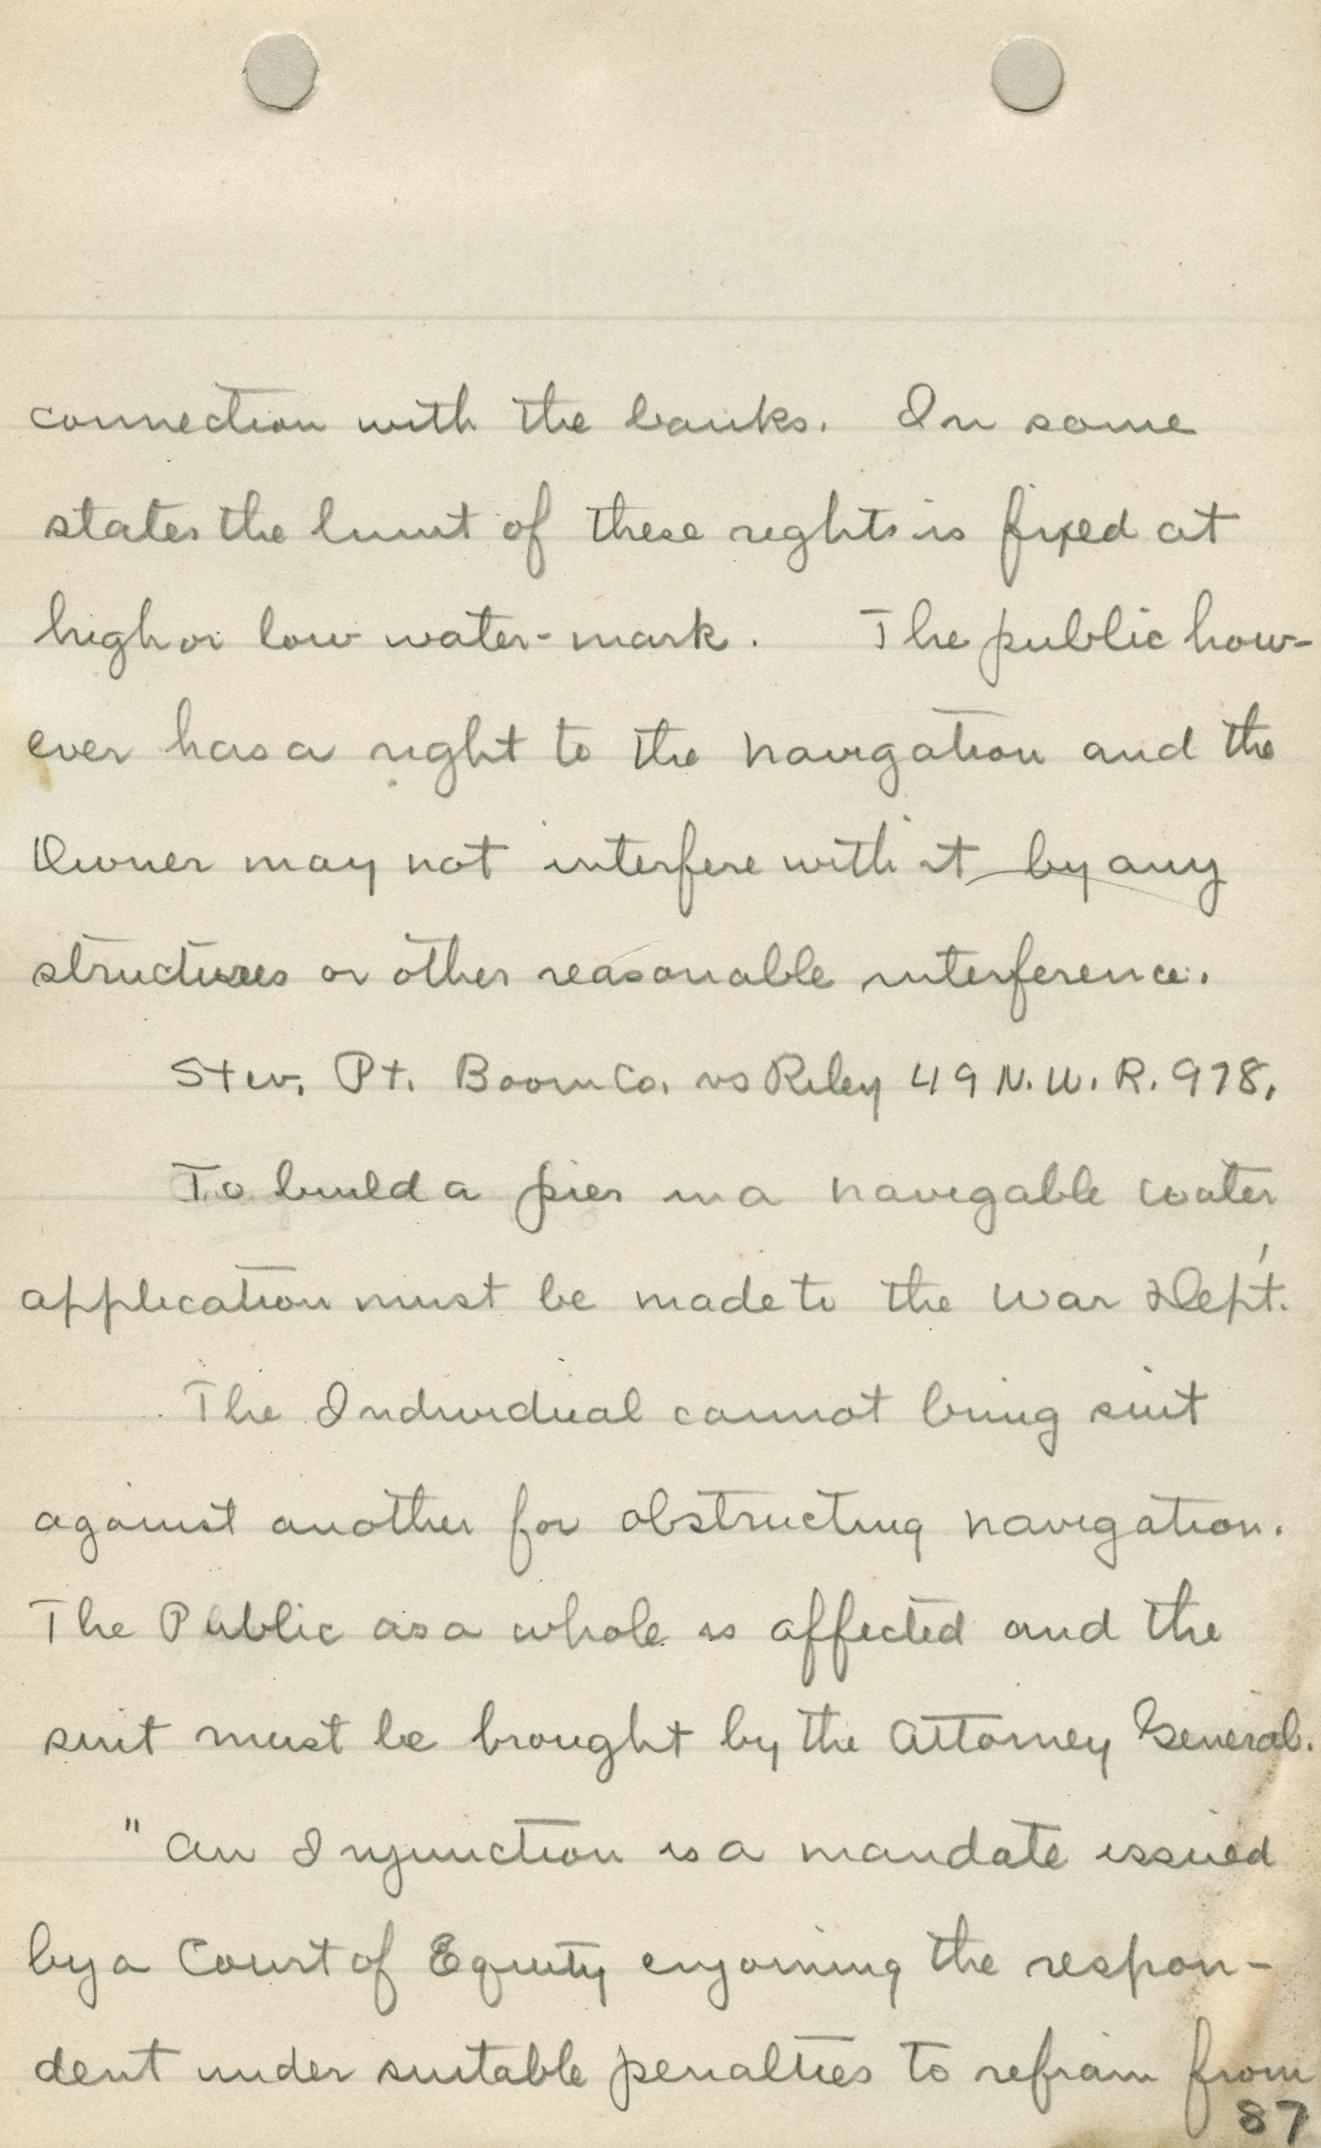 connection with the banks. In some
states the limit of these rights is fixed at
high or low water-mark. The public how-
ever has a right to the navigation and the
Owner may not interfere with it by any
structures or other reasonable interference.
Stev. Pt. Boom Co. vs Riley 49 N.W.R. 978.
To build a pier in a navigable water
application must be made to the War Dep't.
The Individual cannot bring suit
against another for obstructing navigation.
The Public as a whole is affected and the
suit must be brought by the Attorney General.
"An Injunction is a mandate issued
by a Court of Equity enjoining the respon-
dent under suitable penalties to refrain from
87